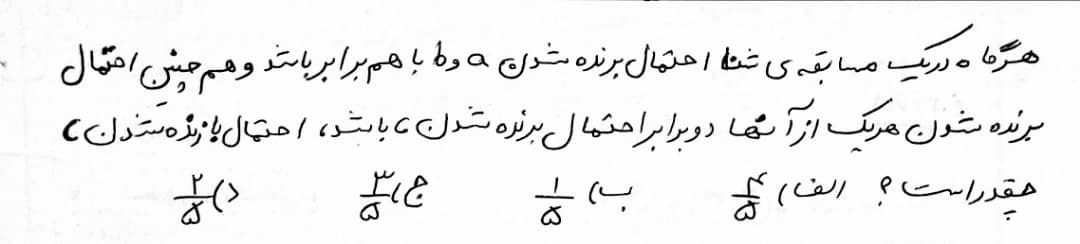 هرگاه در یک مسابقه‌ی شنا احتمال برنده شدن a و b با هم برابر باشد و هم چنین احتمال
برنده شدن هریک از آنها دو برابر احتمال برنده شدن c باشد، احتمال بازنده شدن c
چقدر است؟ الف) ۴/۵ ب) ۱/۵ ج) ۳/۵ د) ۲/۵